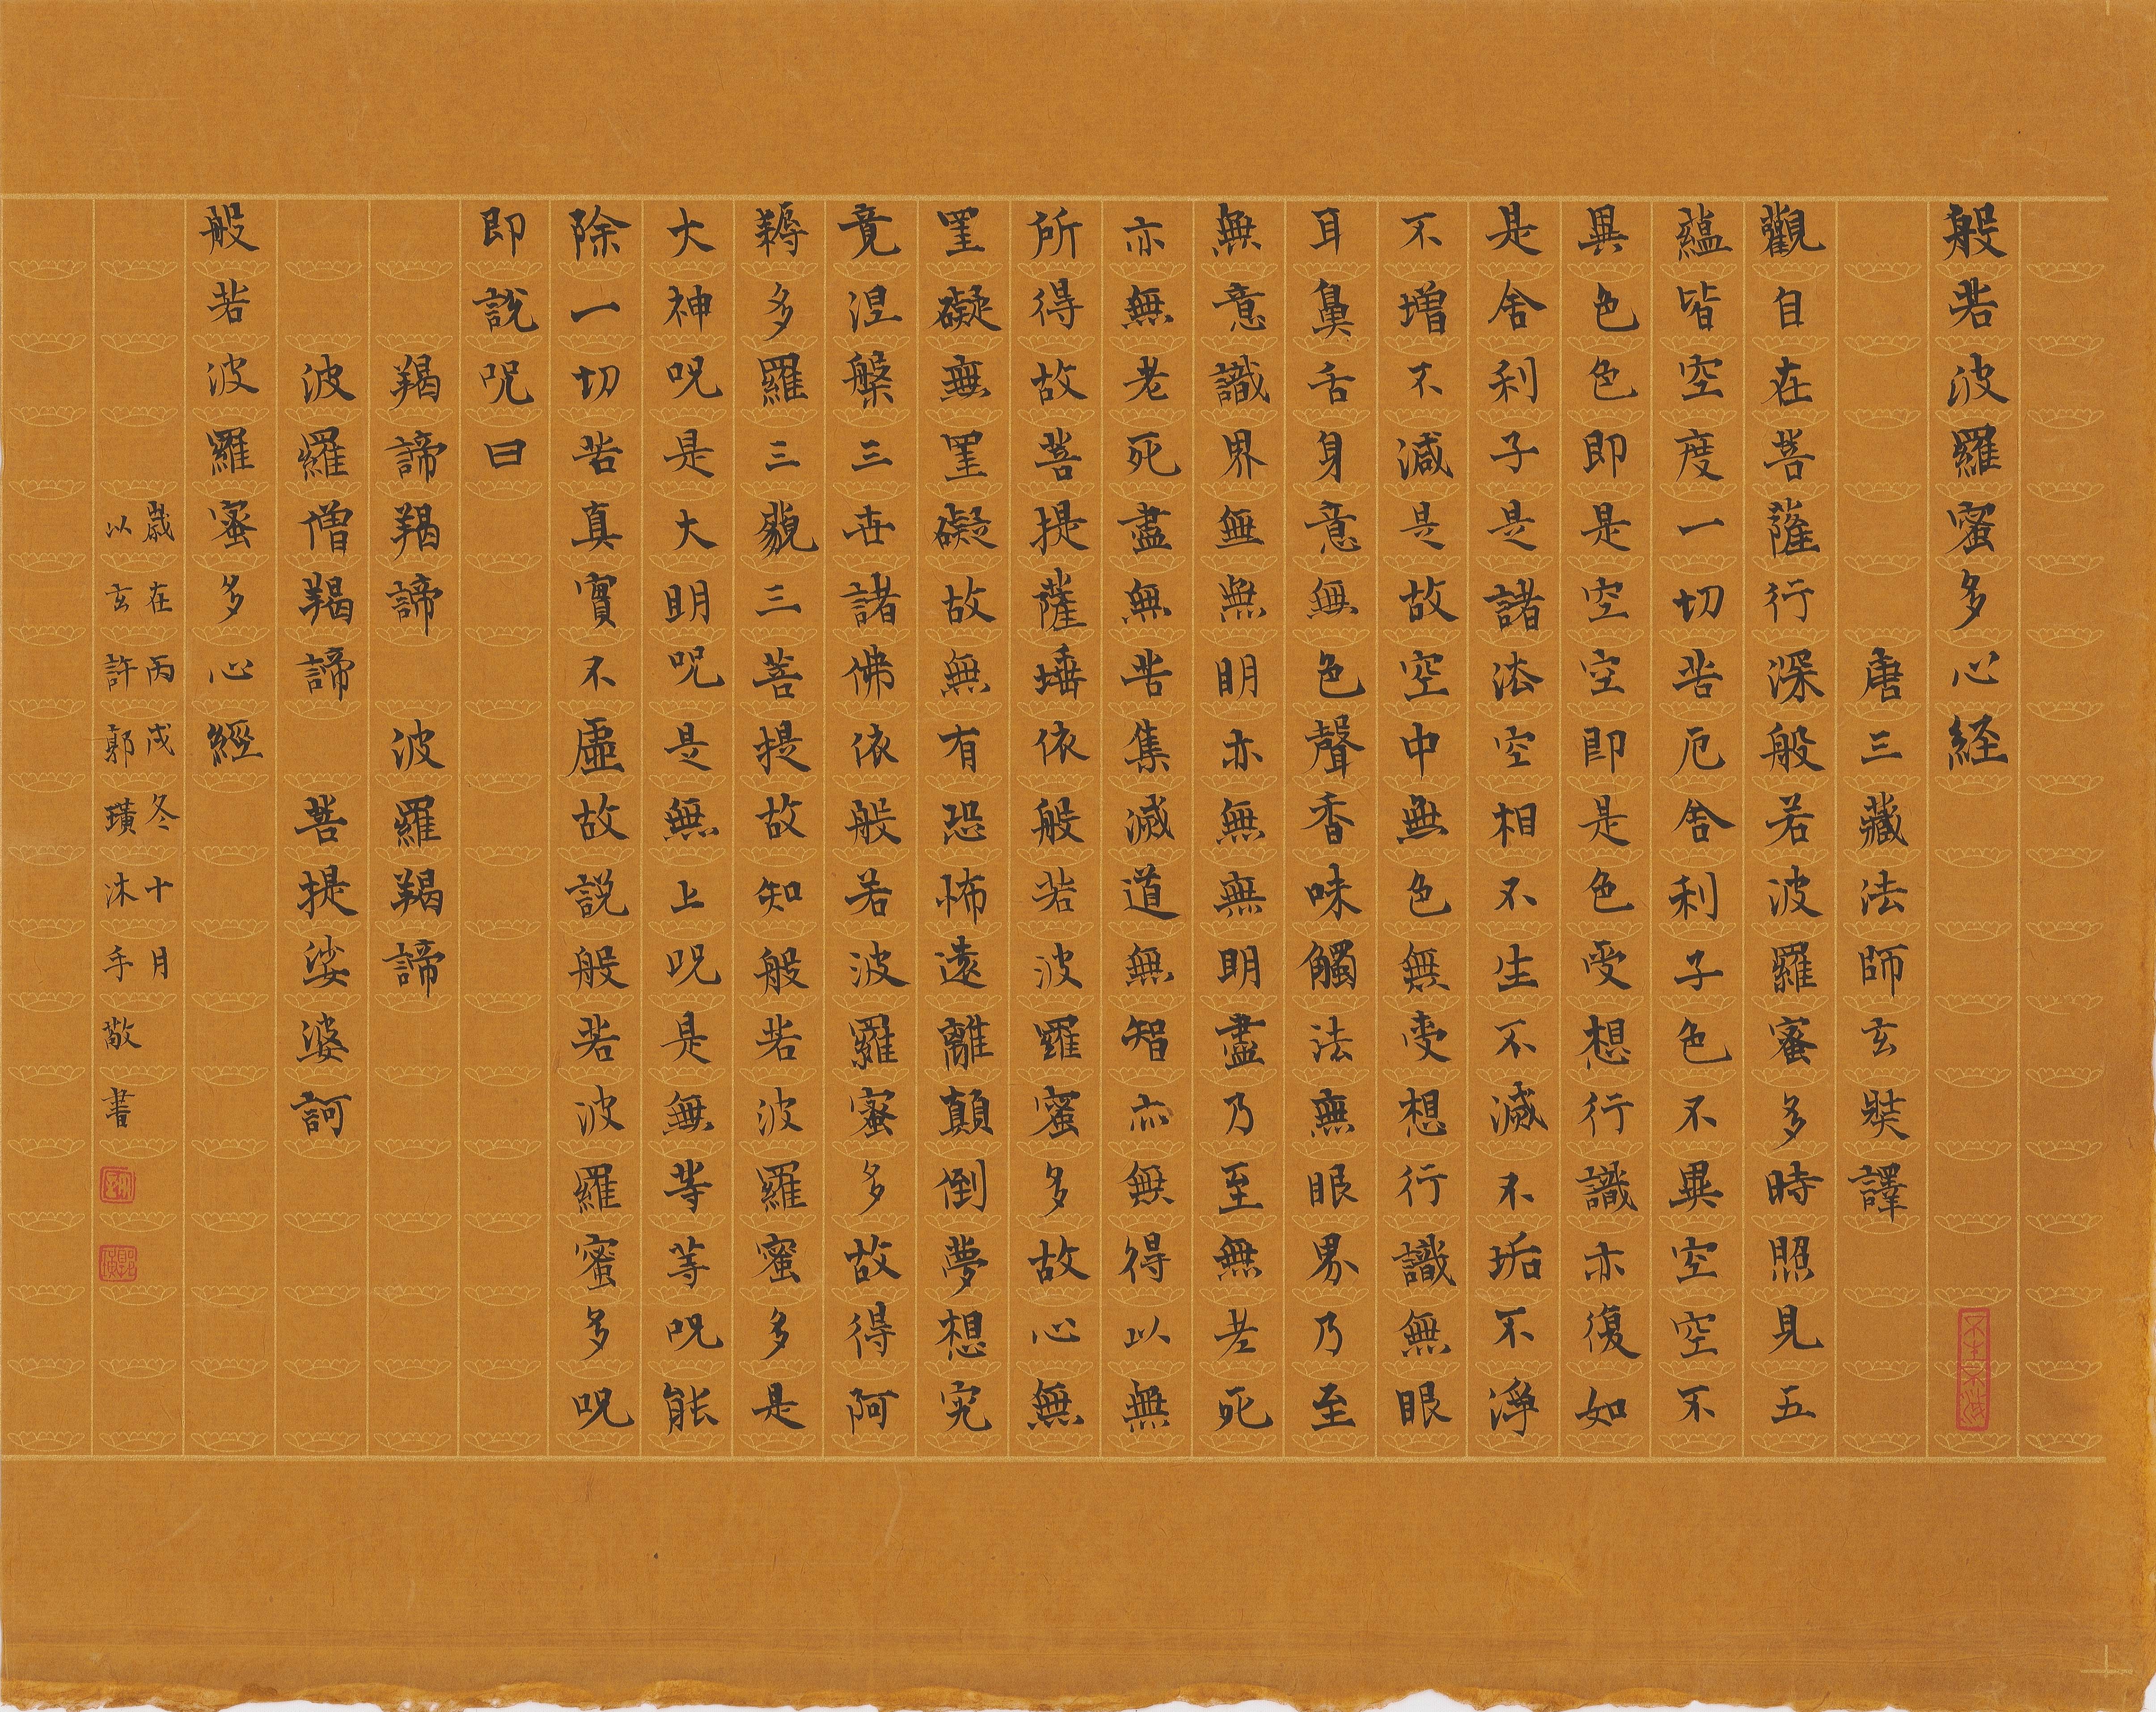 般若波羅蜜多心経
唐三藏法師玄奘譯
觀自在菩薩行深般若波羅蜜多時照見五
蘊皆空度一切苦厄舍利子色不異空空不
異色色即是空空即是色受想行識亦復如
是舍利子是諸法空相不生不滅不垢不淨
不增不減是故空中無色無受想行識無眼
耳鼻舌身意無色聲香味觸法無眼界乃至
無意識界無無明亦無無明盡乃至無老死
亦無老死盡無苦集滅道無智亦無得以無
所得故菩提薩埵依般若波羅蜜多故心無
罣礙無罣礙故無有恐怖遠離顛倒夢想究
竟涅槃三世諸佛依般若波羅蜜多故得阿
耨多羅三藐三菩提故知般若波羅蜜多是
大神呪是大明呪是無上呪是無等等呪能
除一切苦真實不虛故說般若波羅蜜多呪
即說呪曰
羯諦羯諦 波羅羯諦
波羅僧羯諦 菩提娑婆訶
般若波羅蜜多心經
歲在丙戌冬十月
以玄許郭璜沐手敬書